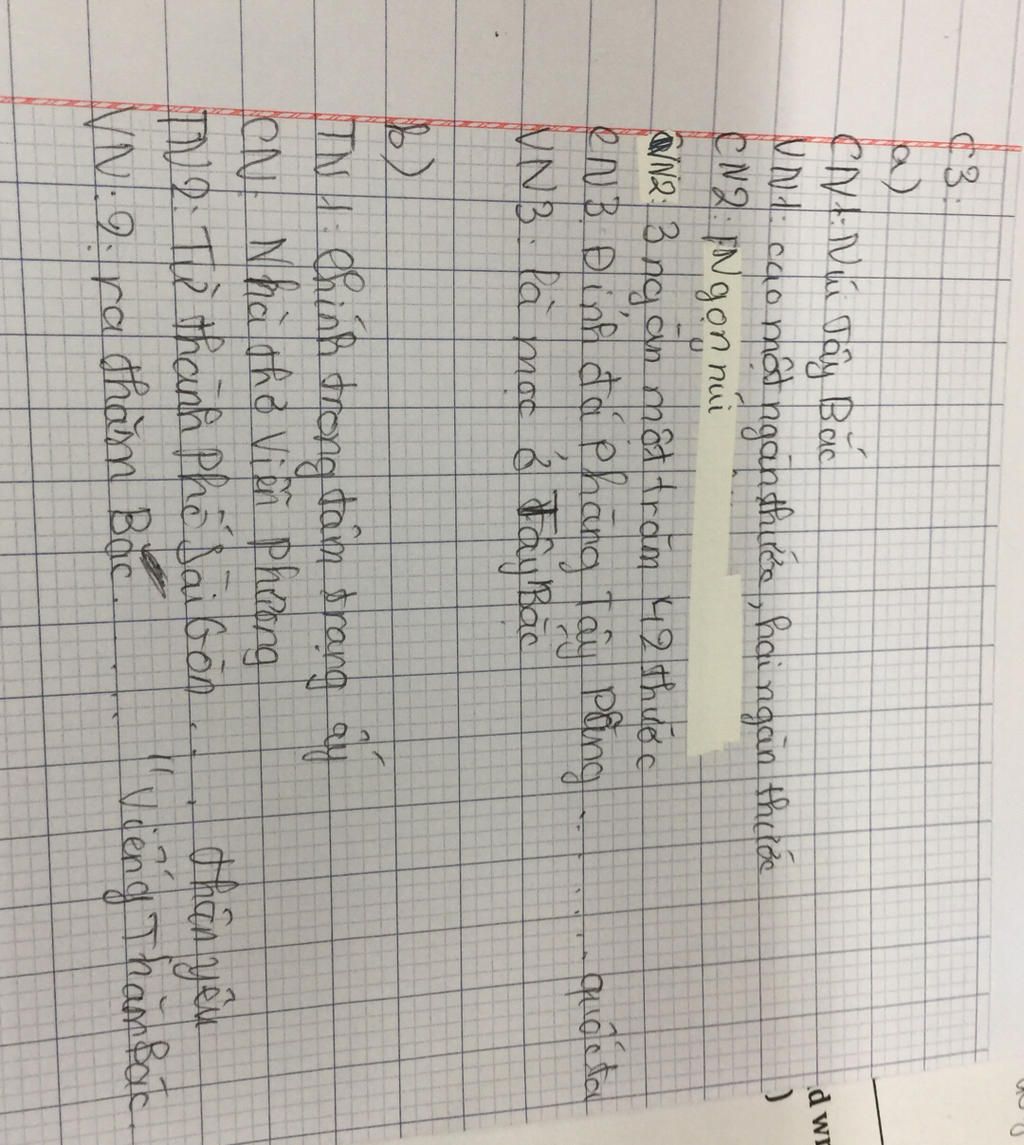 C3:
a)
CN1: Núi Tây Bắc
VN1: cao một ngàn thước, hai ngàn thước
CN2: Ngọn núi
VN2: 3 ngàn một trăm 42 thước
CN3: Đỉnh đá Phăng Tây păng . . . . . . quốc ta
VN3: là mọc ở Tây Bắc
b)
TN1: Chính trong tâm trạng ấy
CN: Nhà thơ Viễn Phương
TN2: Từ thành Phố Sài Gòn . . . . thân yêu
VN: 2: ra thăm Bác . . . . . "Viếng Thăm Bác